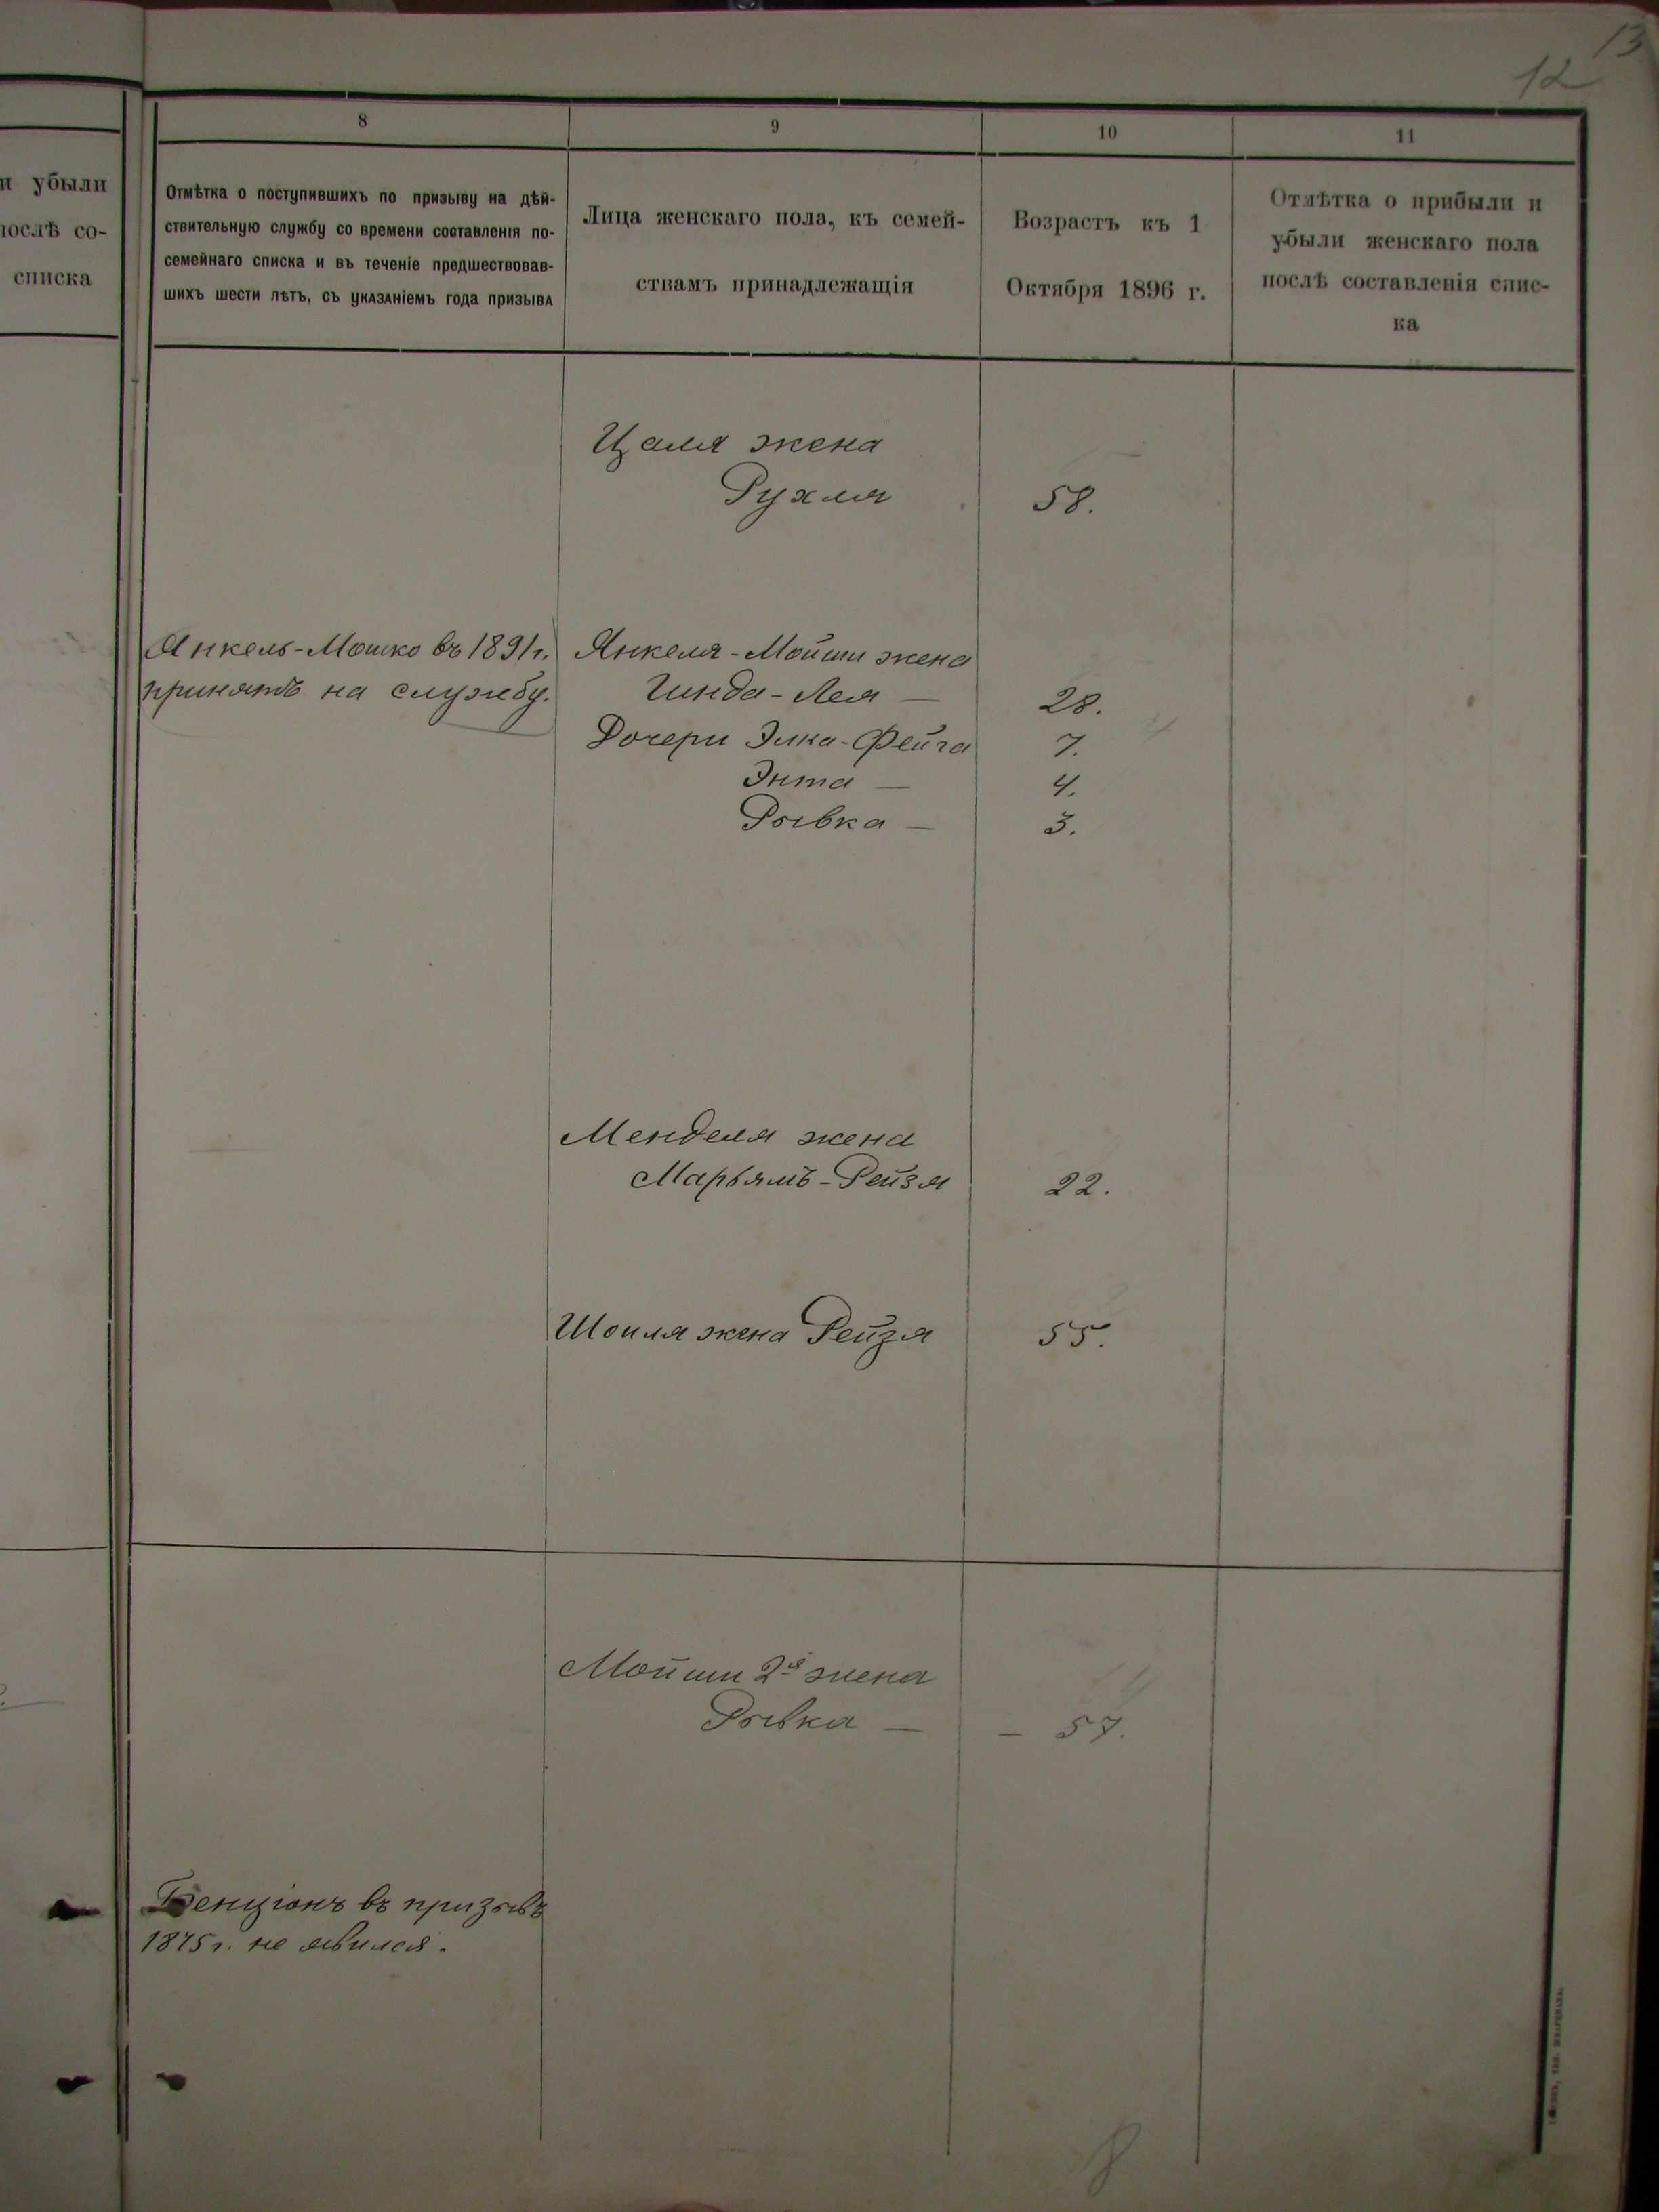 13
12
и убыли
послѣ со-
списка
8
9
10
11
Отмѣтка о поступившихъ по призыву на дѣй-
ствительную службу со времени составленія по-
семейнаго списка и въ теченіе предшествовав-
шихъ шести лѣтъ, съ указаніемъ года призыва
Лица женскаго пола, къ семей-
ствамъ принадлежащія
Возрастъ къ 1
Октября 1896 г.
Отмѣтка о прибыли и
убыли женскаго пола
послѣ составленія спис-
ка
Цаля жена
Рухля 58.
Янкель-Мошко въ 1891 г.
принятъ на службу.
Янкеля-Мойши жена
Гинда-Лея — 28.
Дочери Элка-Фейга 7.
Энта — 4.
Рывка — 3.
Менделя жена
Марьямъ-Рейзя 22.
Шоиля жена Рейзя 55.
Мойши 2я жена
Рывка — — 57.
Бенціонъ въ призывъ
1875 г. не явился.